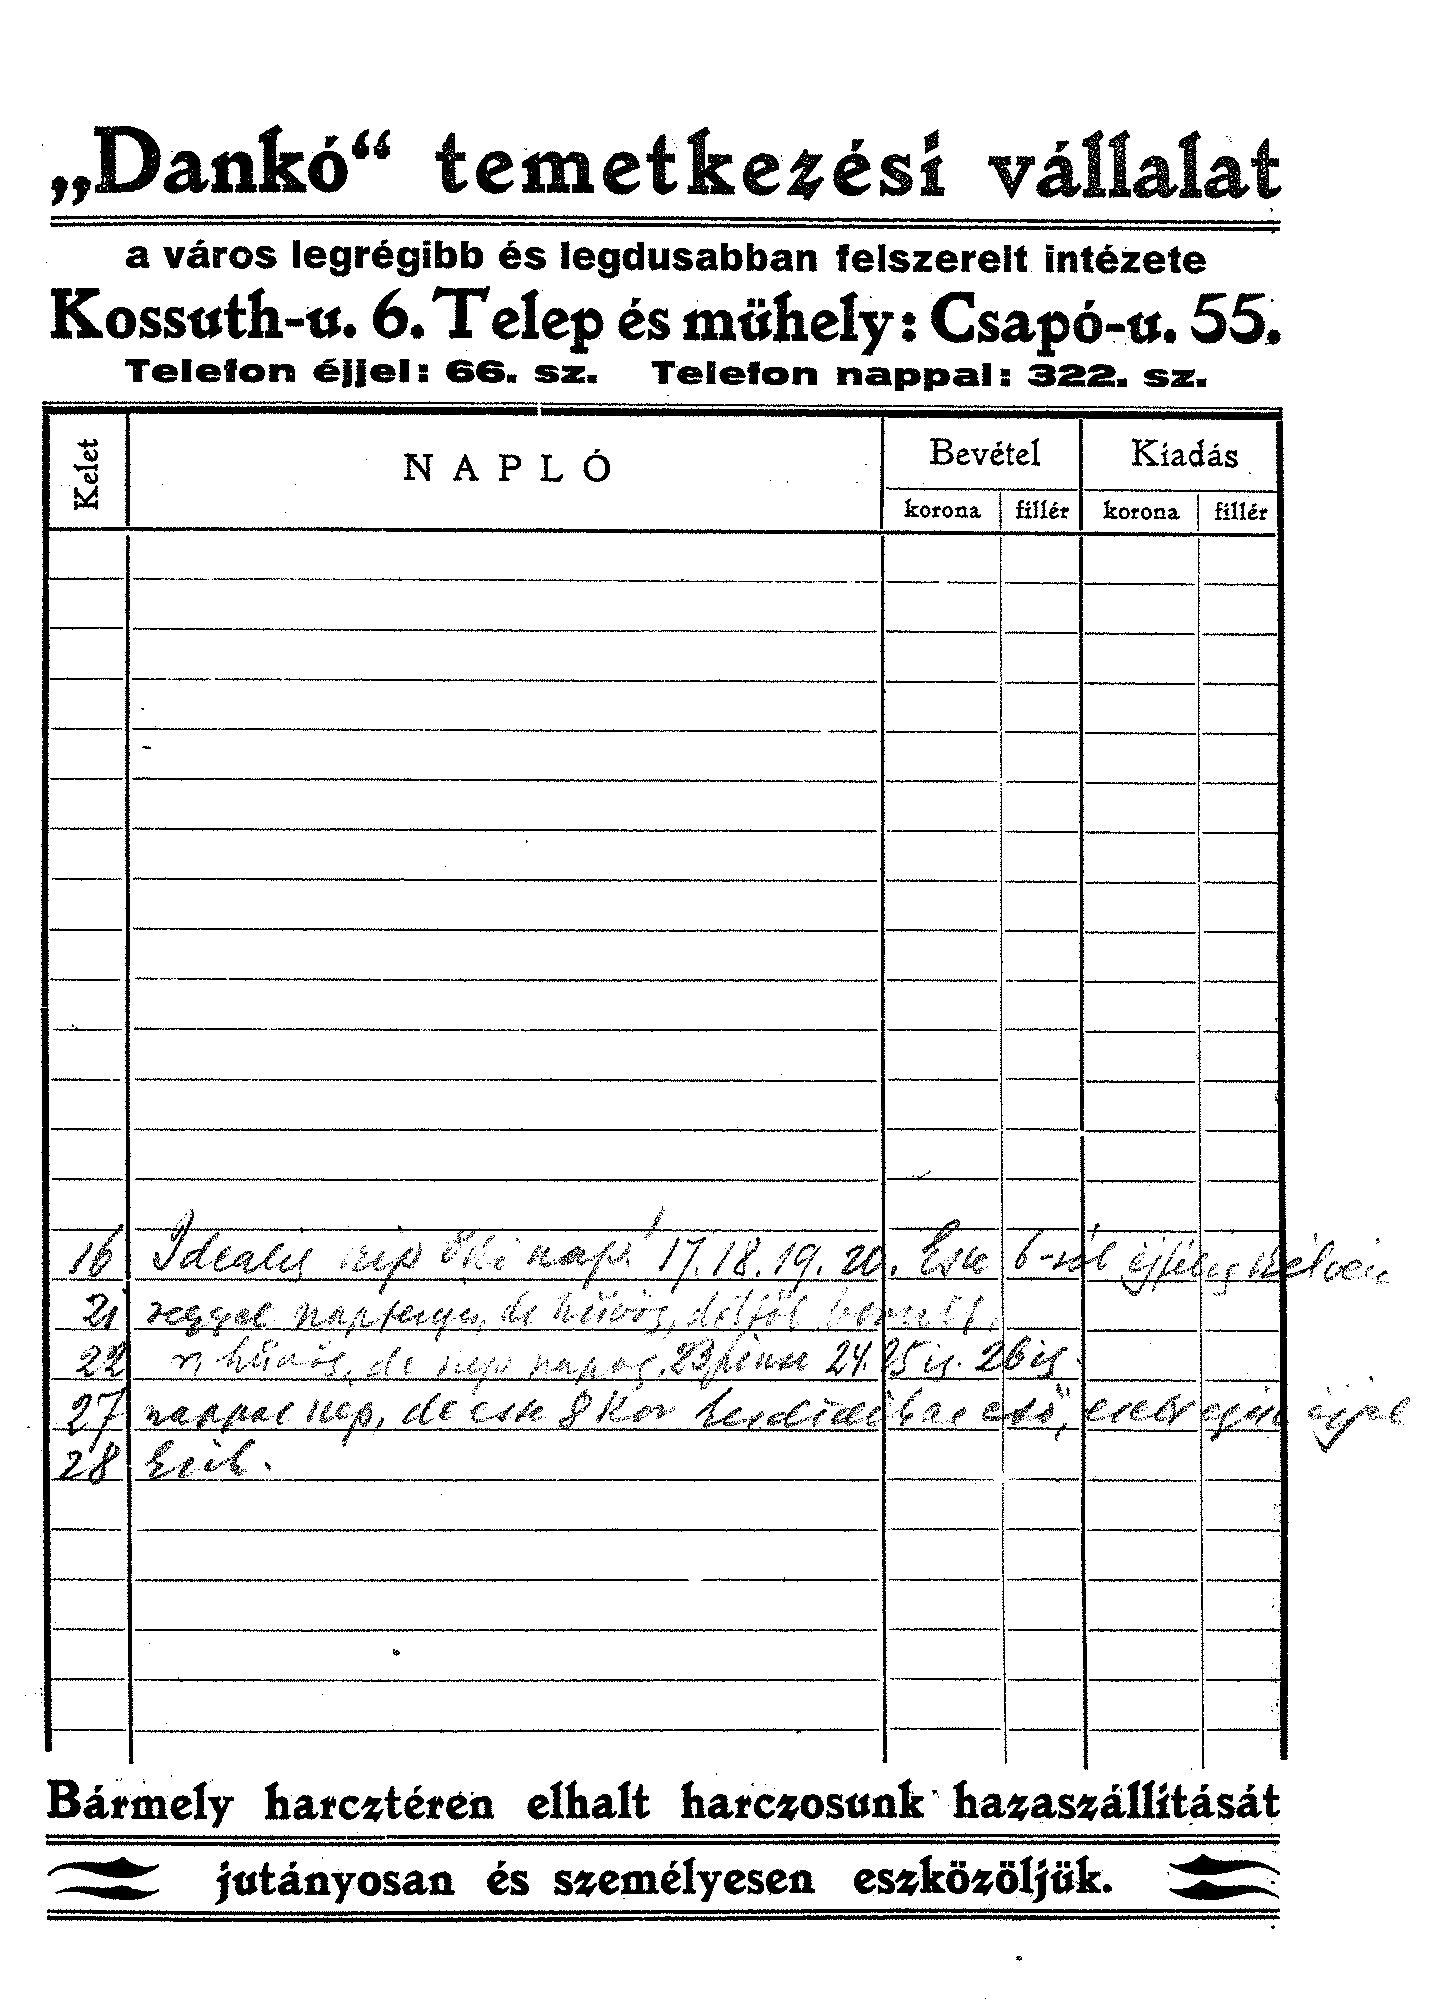 „Dankó“ temetkezési vállalat
a város legrégibb és legdusabban felszerelt intézete
Kossuth-u. 6. Telep és műhely: Csapó-u. 55.
Telefon éjjel: 66. sz. Telefon nappal: 322. sz.
Kelet NAPLÓ Bevétel Kiadás
korona fillér korona fillér
16 Ideális szép őszi nap! 17. 18. 19. 20. Este 6-tól éjfélig
21 reggel napfényes, de hűvös, déltől borult.
22 hűvös, de szép napos. 23 24. 25 is. 26 is.
27 nappal szép, de este 8 kor az eső, esett egész éjjel
28 Esik.
Bármely harcztéren elhalt harczosunk hazaszállítását
jutányosan és személyesen eszközöljük.